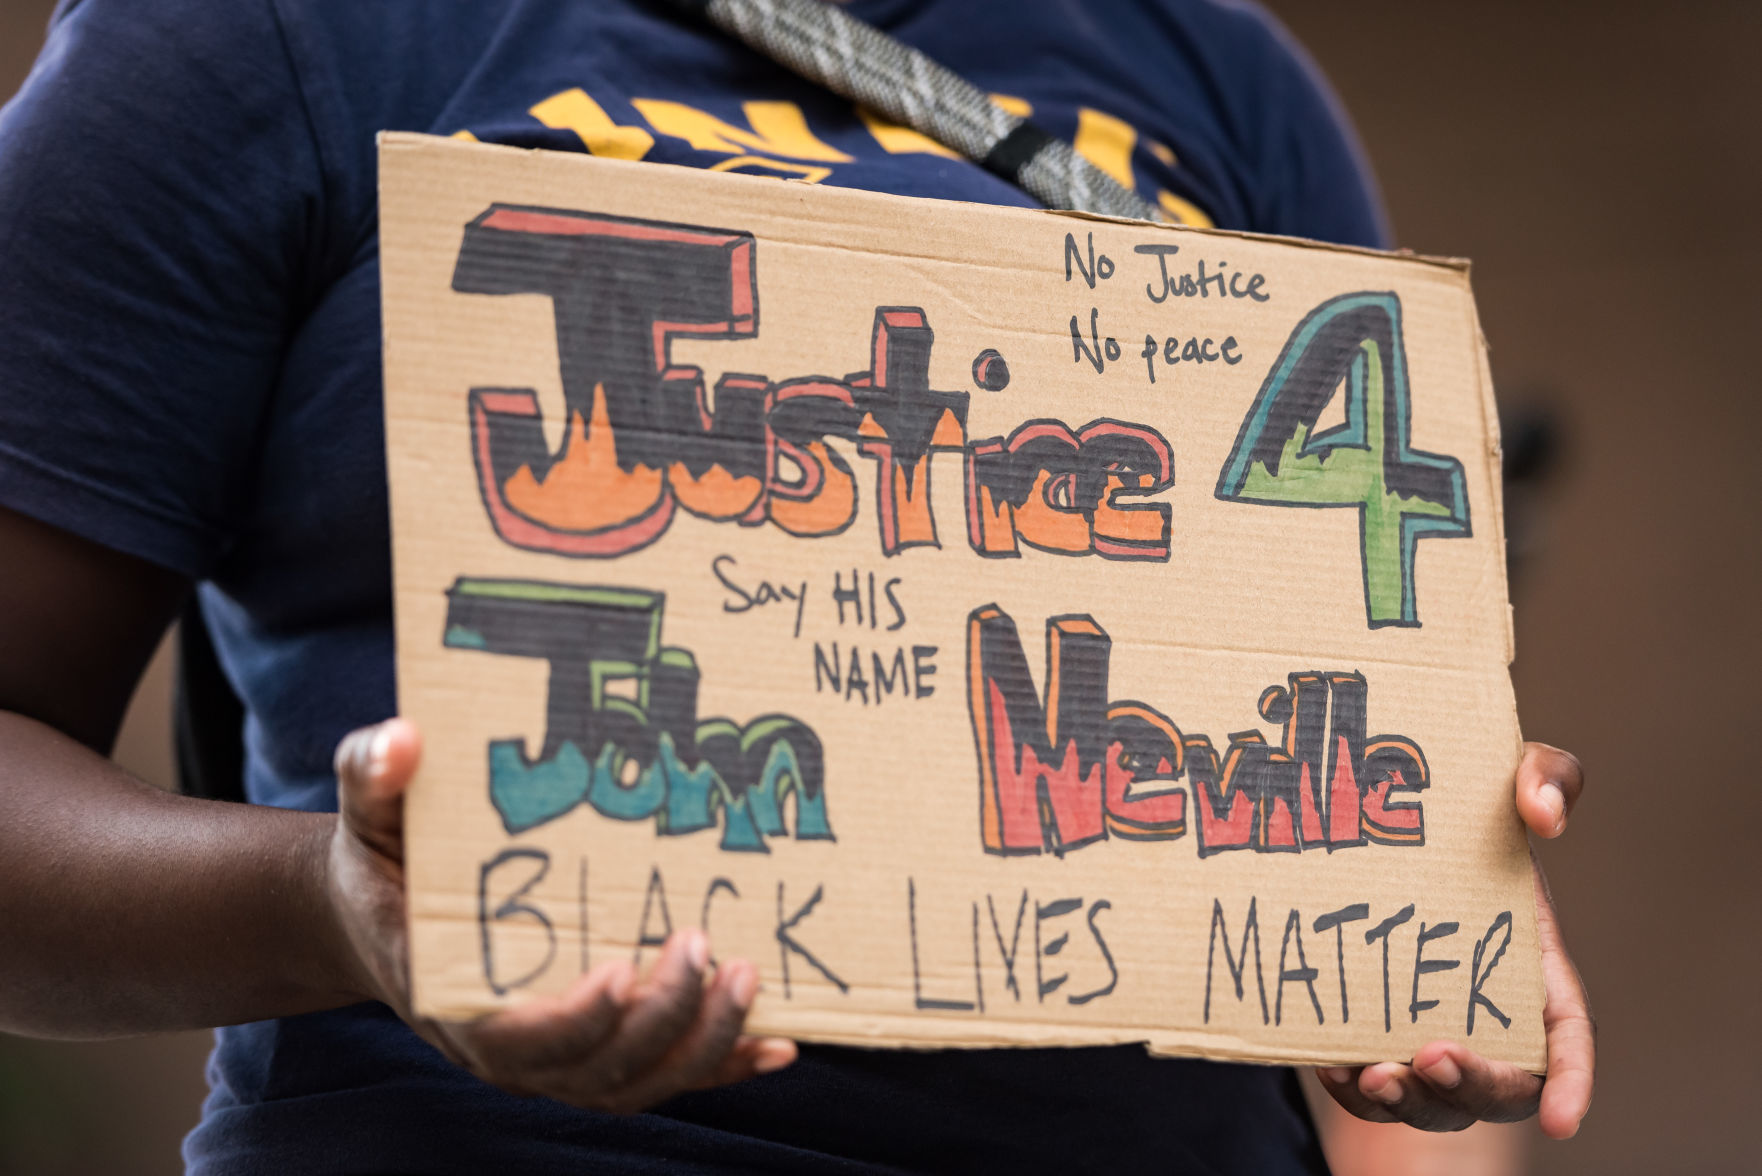 No Justice
No peace
Justice 4
Say HIS
NAME
John Neville
BLACK LIVES MATTER